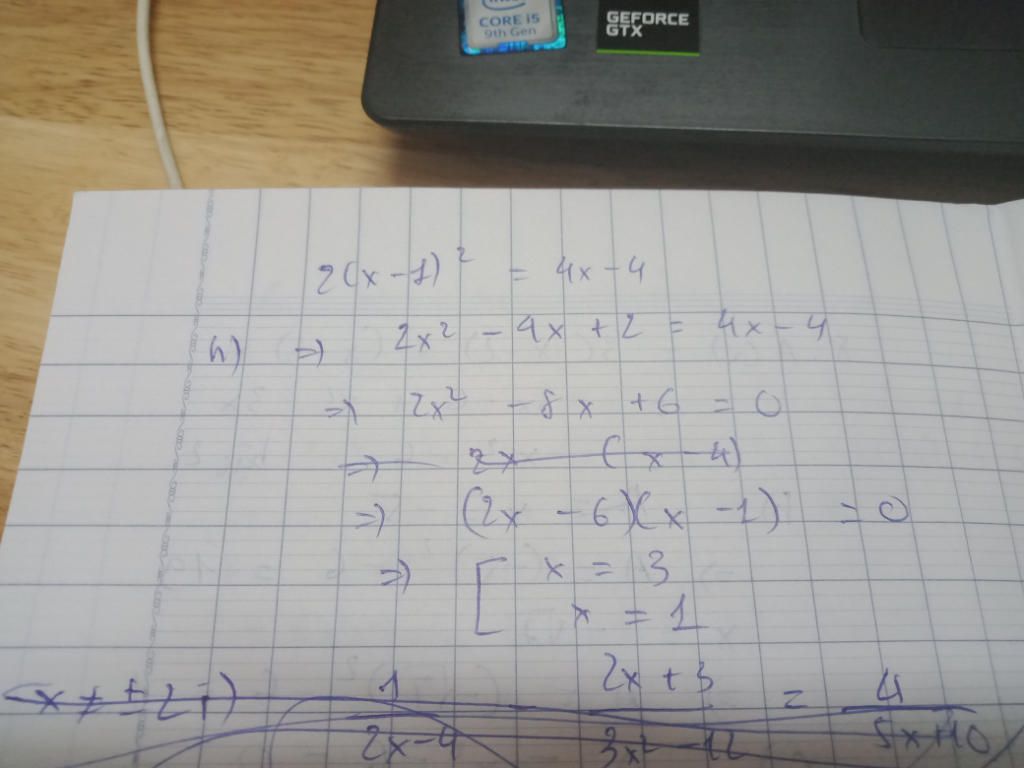 intel
CORE i5
9th Gen
GEFORCE
GTX
2(x-1)² = 4x-4
h) => 2x² - 4x + 2 = 4x - 4
=> 2x² - 8x + 6 = 0
=> 2x (x-4)
=> (2x - 6)(x - 1) = 0
=> [ x = 3
x = 1
(x ≠ ±2) i) 1/(2x-4) (2x+3)/(3x²-12) = 4/(5x+10)